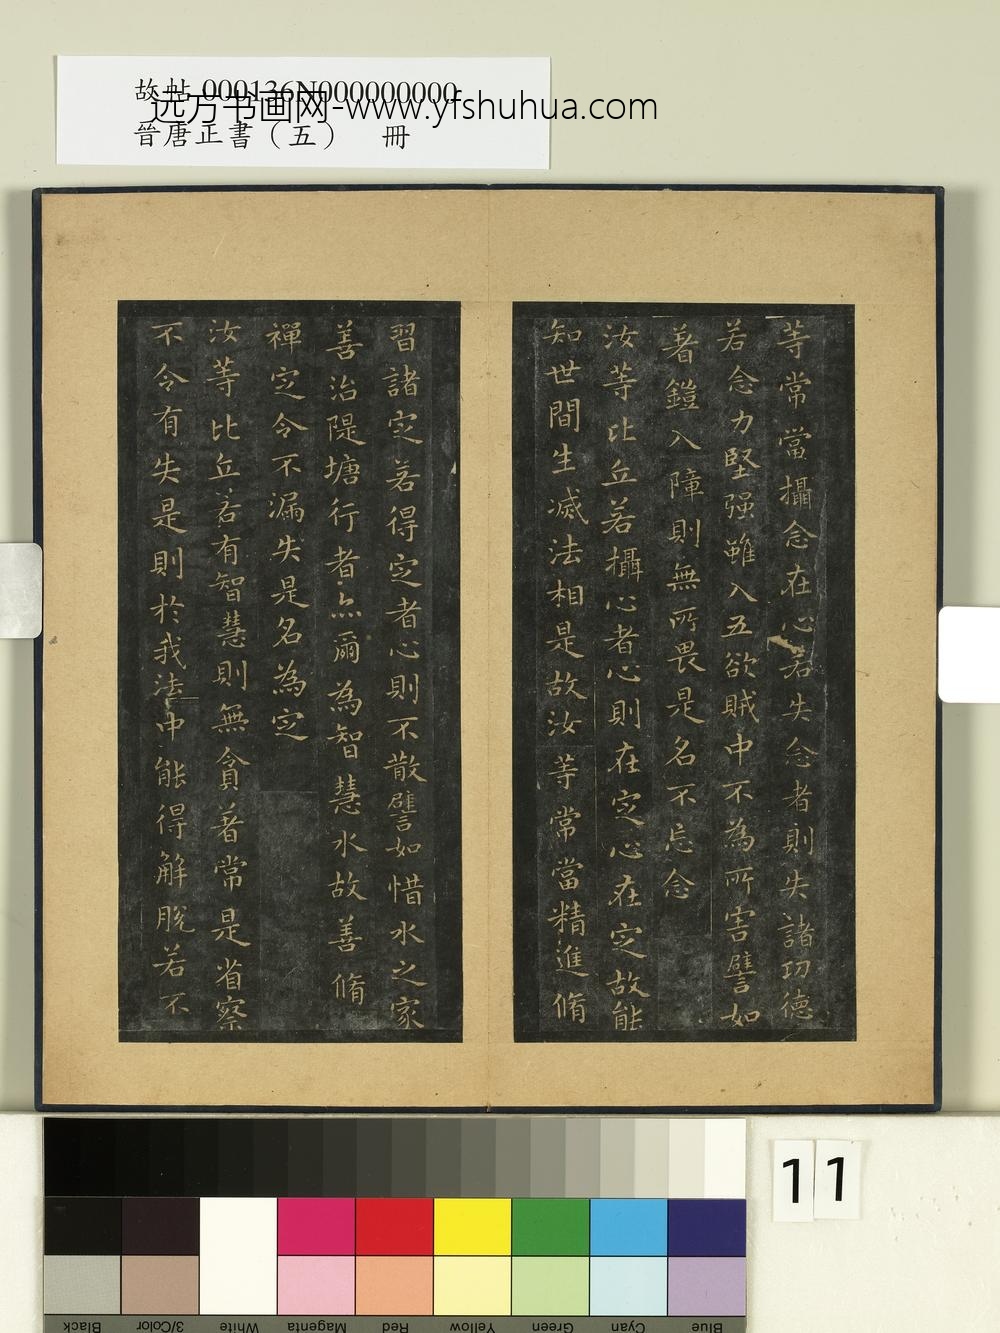 故帖 000136N000000000
远方书画网-www.yfshuhua.com
晉唐正書（五） 冊
等常當攝念在心若失念者則失諸功德
若念力堅强雖入五欲賊中不為所害譬如
著鎧入陣則無所畏是名不忘念
汝等比丘若攝心者心則在定心在定故能
知世間生滅法相是故汝等常當精進脩
習諸定若得定者心則不散譬如惜水之家
善治隄塘行者亦爾為智慧水故善脩
禪定令不漏失是名為定
汝等比丘若有智慧則無貪著常是省察
不令有失是則於我法中能得解脫若不
11
Black
3/Color
White
Magenta
Red
Yellow
Green
Cyan
Blue